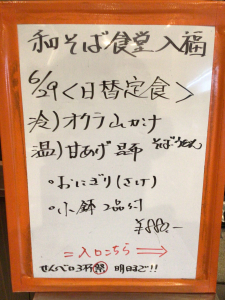 和そば食堂 入福
6/29 <日替定食>
冷) オクラ山かけ
温) 甘あげ昆布 そばorうどん
。おにぎり(さけ)
。小鉢2品付
¥880-
=入口こちら→
せんべろ3杯 明日まで!!